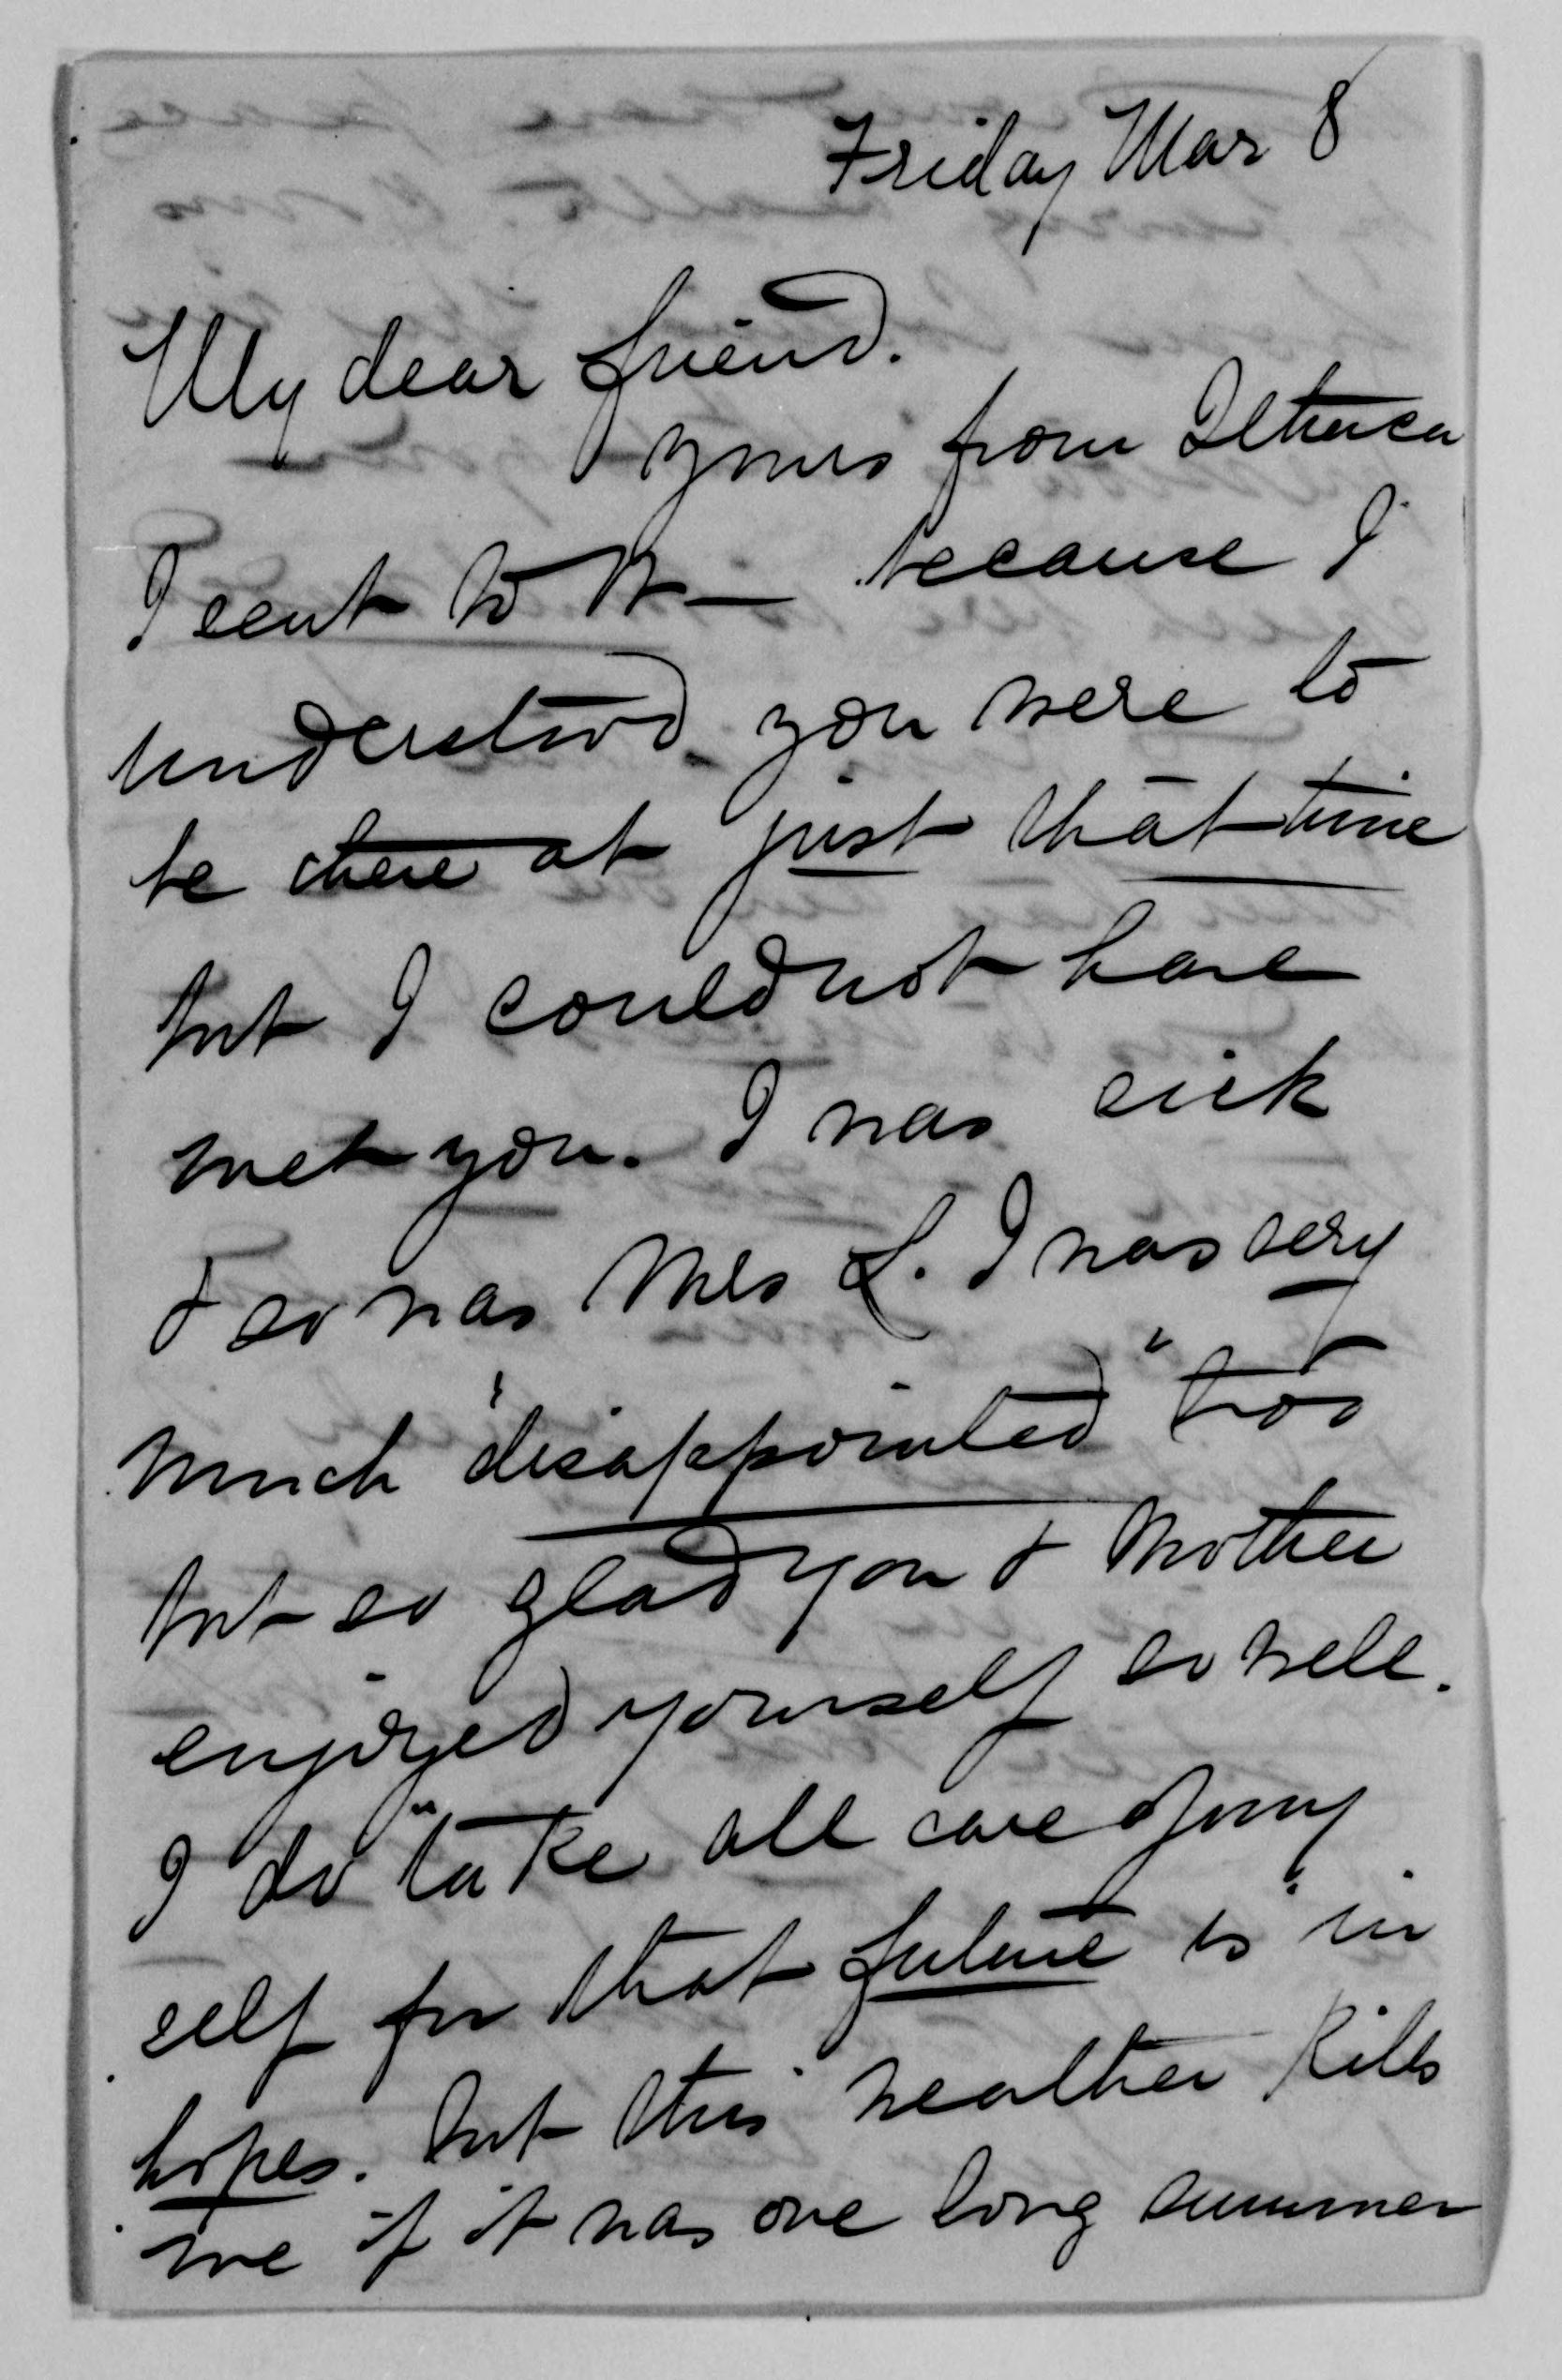 Friday Mar 8
My dear friend.
yours from Ithaca
I sent to B— because I
understood you were to
be there at just that time
but I could not have
met you. I was sick
& so was Mrs L. I was very
much "disappointed" too
but so glad you & Mother
enjoyed yourself so well.
I do "take all care of my
self for that future" is "in
hopes. but this weather kills
me if it was one long summer